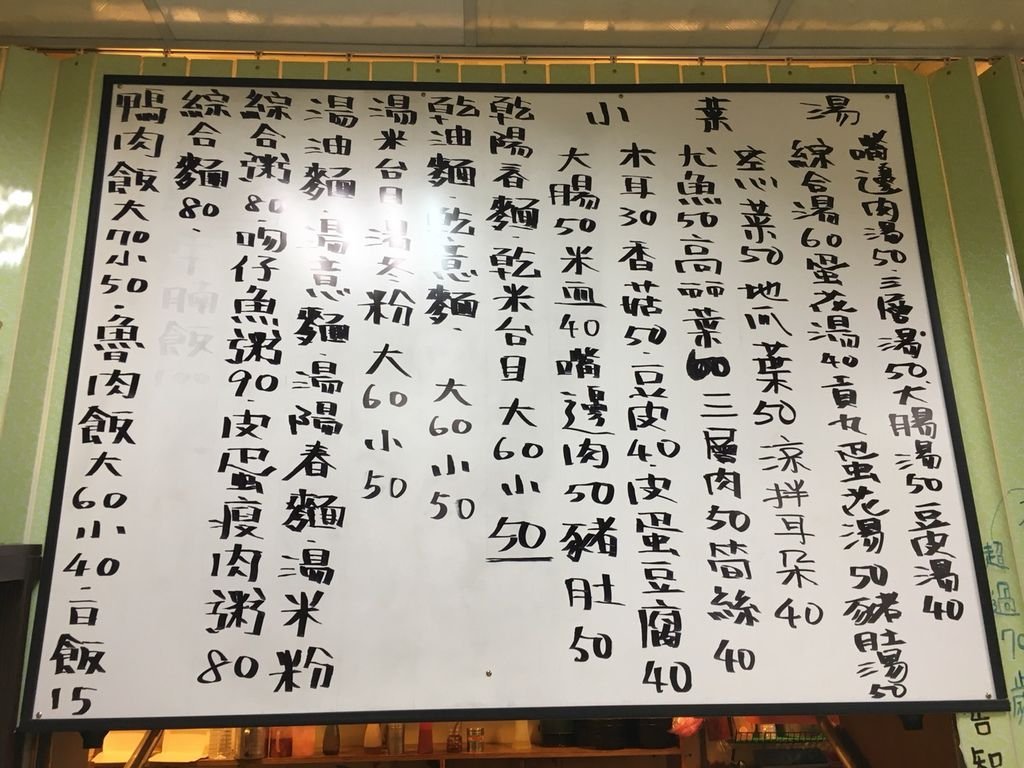 小菜湯
嘴邊肉湯50.三層湯50大腸湯50豆皮湯40
綜合湯60蛋花湯40貢丸蛋花湯50豬肚湯50
地瓜葉50涼拌耳朵40
尤魚50高麗菜60三層肉50筍絲40
木耳30香菇50.豆皮40.皮蛋豆腐40
大腸50米血40嘴邊肉50豬肚50
乾陽春麵.乾米台目大60小50
乾油麵.乾意麵.大60小50
湯米台目.湯冬粉大60小50
湯油麵.湯意麵.湯陽春麵.湯米粉
綜合粥80.吻仔魚粥90.皮蛋瘦肉粥80
綜合麵80.
腩飯
鴨肉飯大70小50.魯肉飯大60小40.白飯15
超過70歲
告知